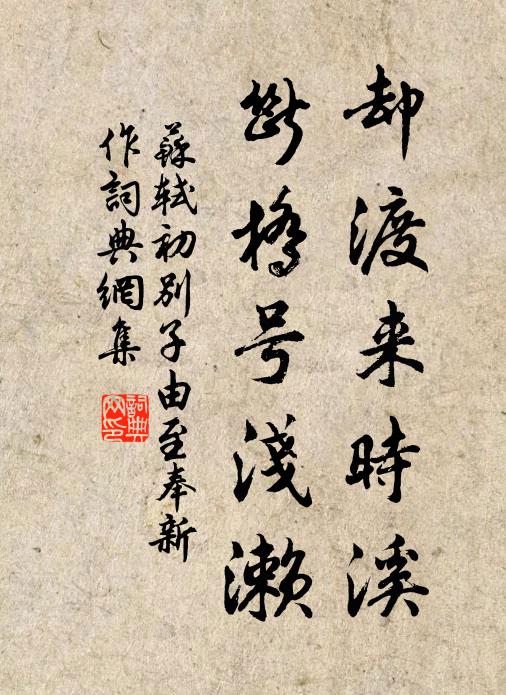 却渡来時溪
斷橋号淺瀨
蘇軾初別子由至奉新
作詞典網集
詞典網印